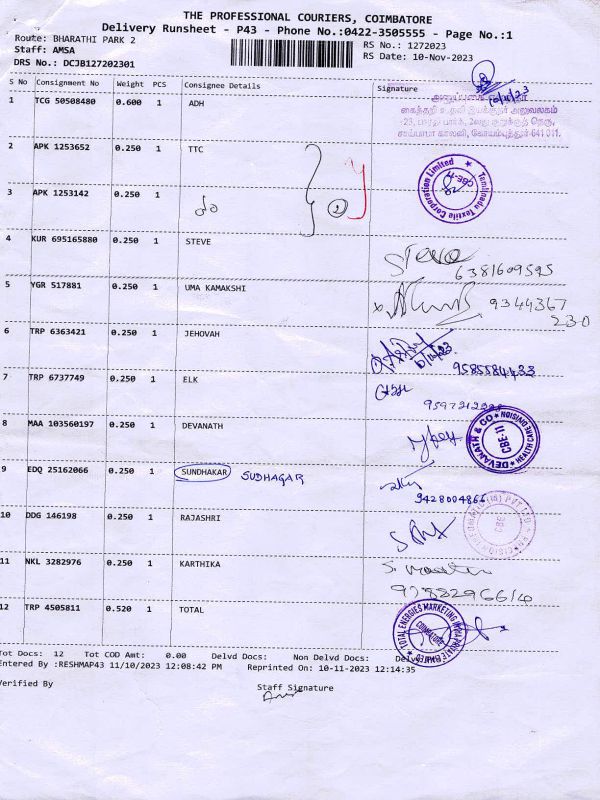 THE PROFESSIONAL COURIERS, COIMBATORE
Delivery Runsheet - P43 - Phone No.:0422-3505555 - Page No.:1
Route: BHARATHI PARK 2
RS No.: 1272023
Staff: AMSA
RS Date: 10-Nov-2023
DRS No.: DCJB127202301
S No Consignment No Weight PCS Consignee Details Signature
1 TCG 50508480 0.600 1 ADH
கைத்தறி உதவி இயக்குநர் அலுவலகம்
-23, பாரதி பார்க், 2வது குறுக்குத் தெரு,
சாய்பாபா காலனி, கோயம்புத்தூர்-641 011.
2 APK 1253652 0.250 1 TTC
Tamilnadu Textile Corporation Limited
3 APK 1253142 0.250 1
2
4 KUR 695165880 0.250 1 STEVE
Steve
6381609595
5 YGR 517881 0.250 1 UMA KAMAKSHI
9344367
230
6 TRP 6363421 0.250 1 JEHOVAH
9585584433
7 TRP 6737749 0.250 1 ELK
8 MAA 103560197 0.250 1 DEVANATH
DEVANATH & CO HEALTH CARE DIVISION
CBE-11
9 EDQ 25162066 0.250 1 SUNDHAKAR SUDHAGAR
9428004866
10 DDG 146198 0.250 1 RAJASHRI
CBE
11 NKL 3282976 0.250 1 KARTHIKA
12 TRP 4505811 0.520 1 TOTAL
TOTAL ENERGIES MARKETING INDIA PRIVATE LIMITED
COIMBATORE
Tot Docs: 12 Tot COD Amt: 0.00 Delvd Docs: Non Delvd Docs:
Entered By :RESHMAP43 11/10/2023 12:08:42 PM Reprinted On: 10-11-2023 12:14:35
Verified By
Staff Signature